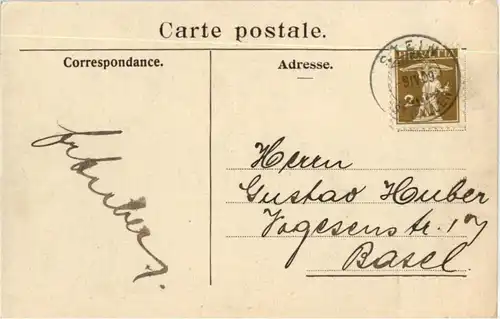 Carte postale.
Correspondance.
Adresse.
HELVETIA
2
Herrn
Gustav Huber
Vogesenstr. 107
Basel.